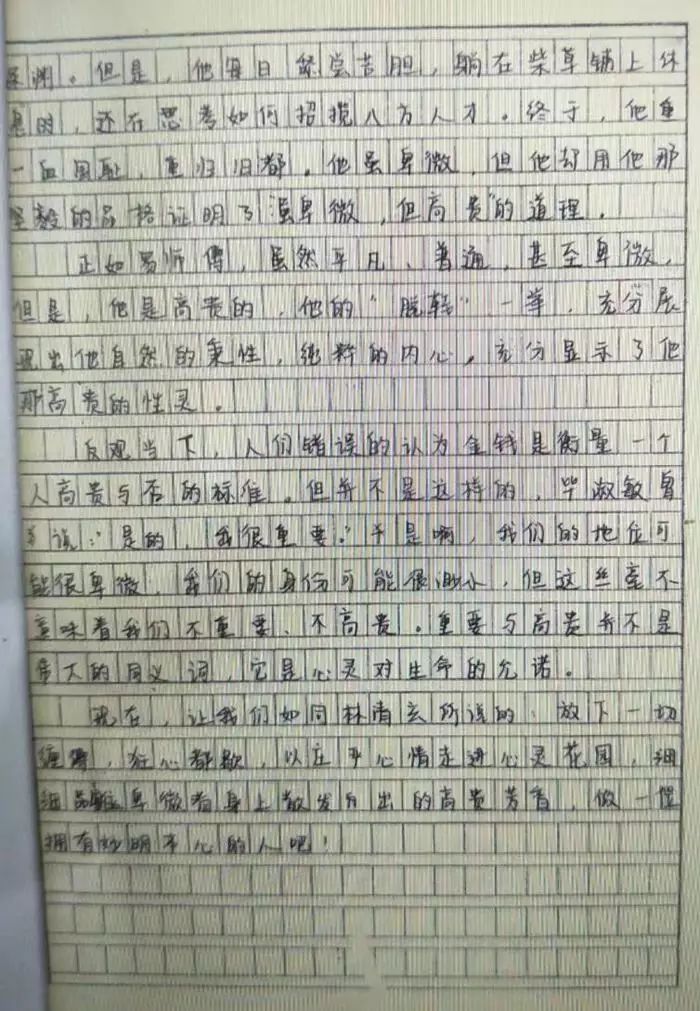 深渊。但是，他每日编尝苦胆，躺在柴草铺上休
息时，还在思考如何招揽八方人才。终于，他重
一血国耻，重归旧都。他虽卑微，但他却用他那
坚毅的品格证明了“虽卑微，但高贵”的道理。
正如易师傅，虽然平凡、普通，甚至卑微，
但是，他是高贵的，他的“脱鞋”一举，充分展
现出他自然的秉性，纯粹的内心。充分显示了他
那高贵的性灵。
反观当下，人们错误的认为金钱是衡量一个
人高贵与否的标准。但并不是这样的，毕淑敏曾
说：“是的，我很重要。”于是啊，我们的地位可
能很卑微，我们的身份可能很渺小，但这丝毫不
意味着我们不重要、不高贵。重要与高贵并不是
伟大的同义词，它是心灵对生命的允诺。
现在，让我们如同林清玄所说的：放下一切
缠缚，狂心都歇，以庄平心情走进心灵花园，细
细品卑微者身上散发出的高贵芳香，做一位
拥有妙明平心的人吧！